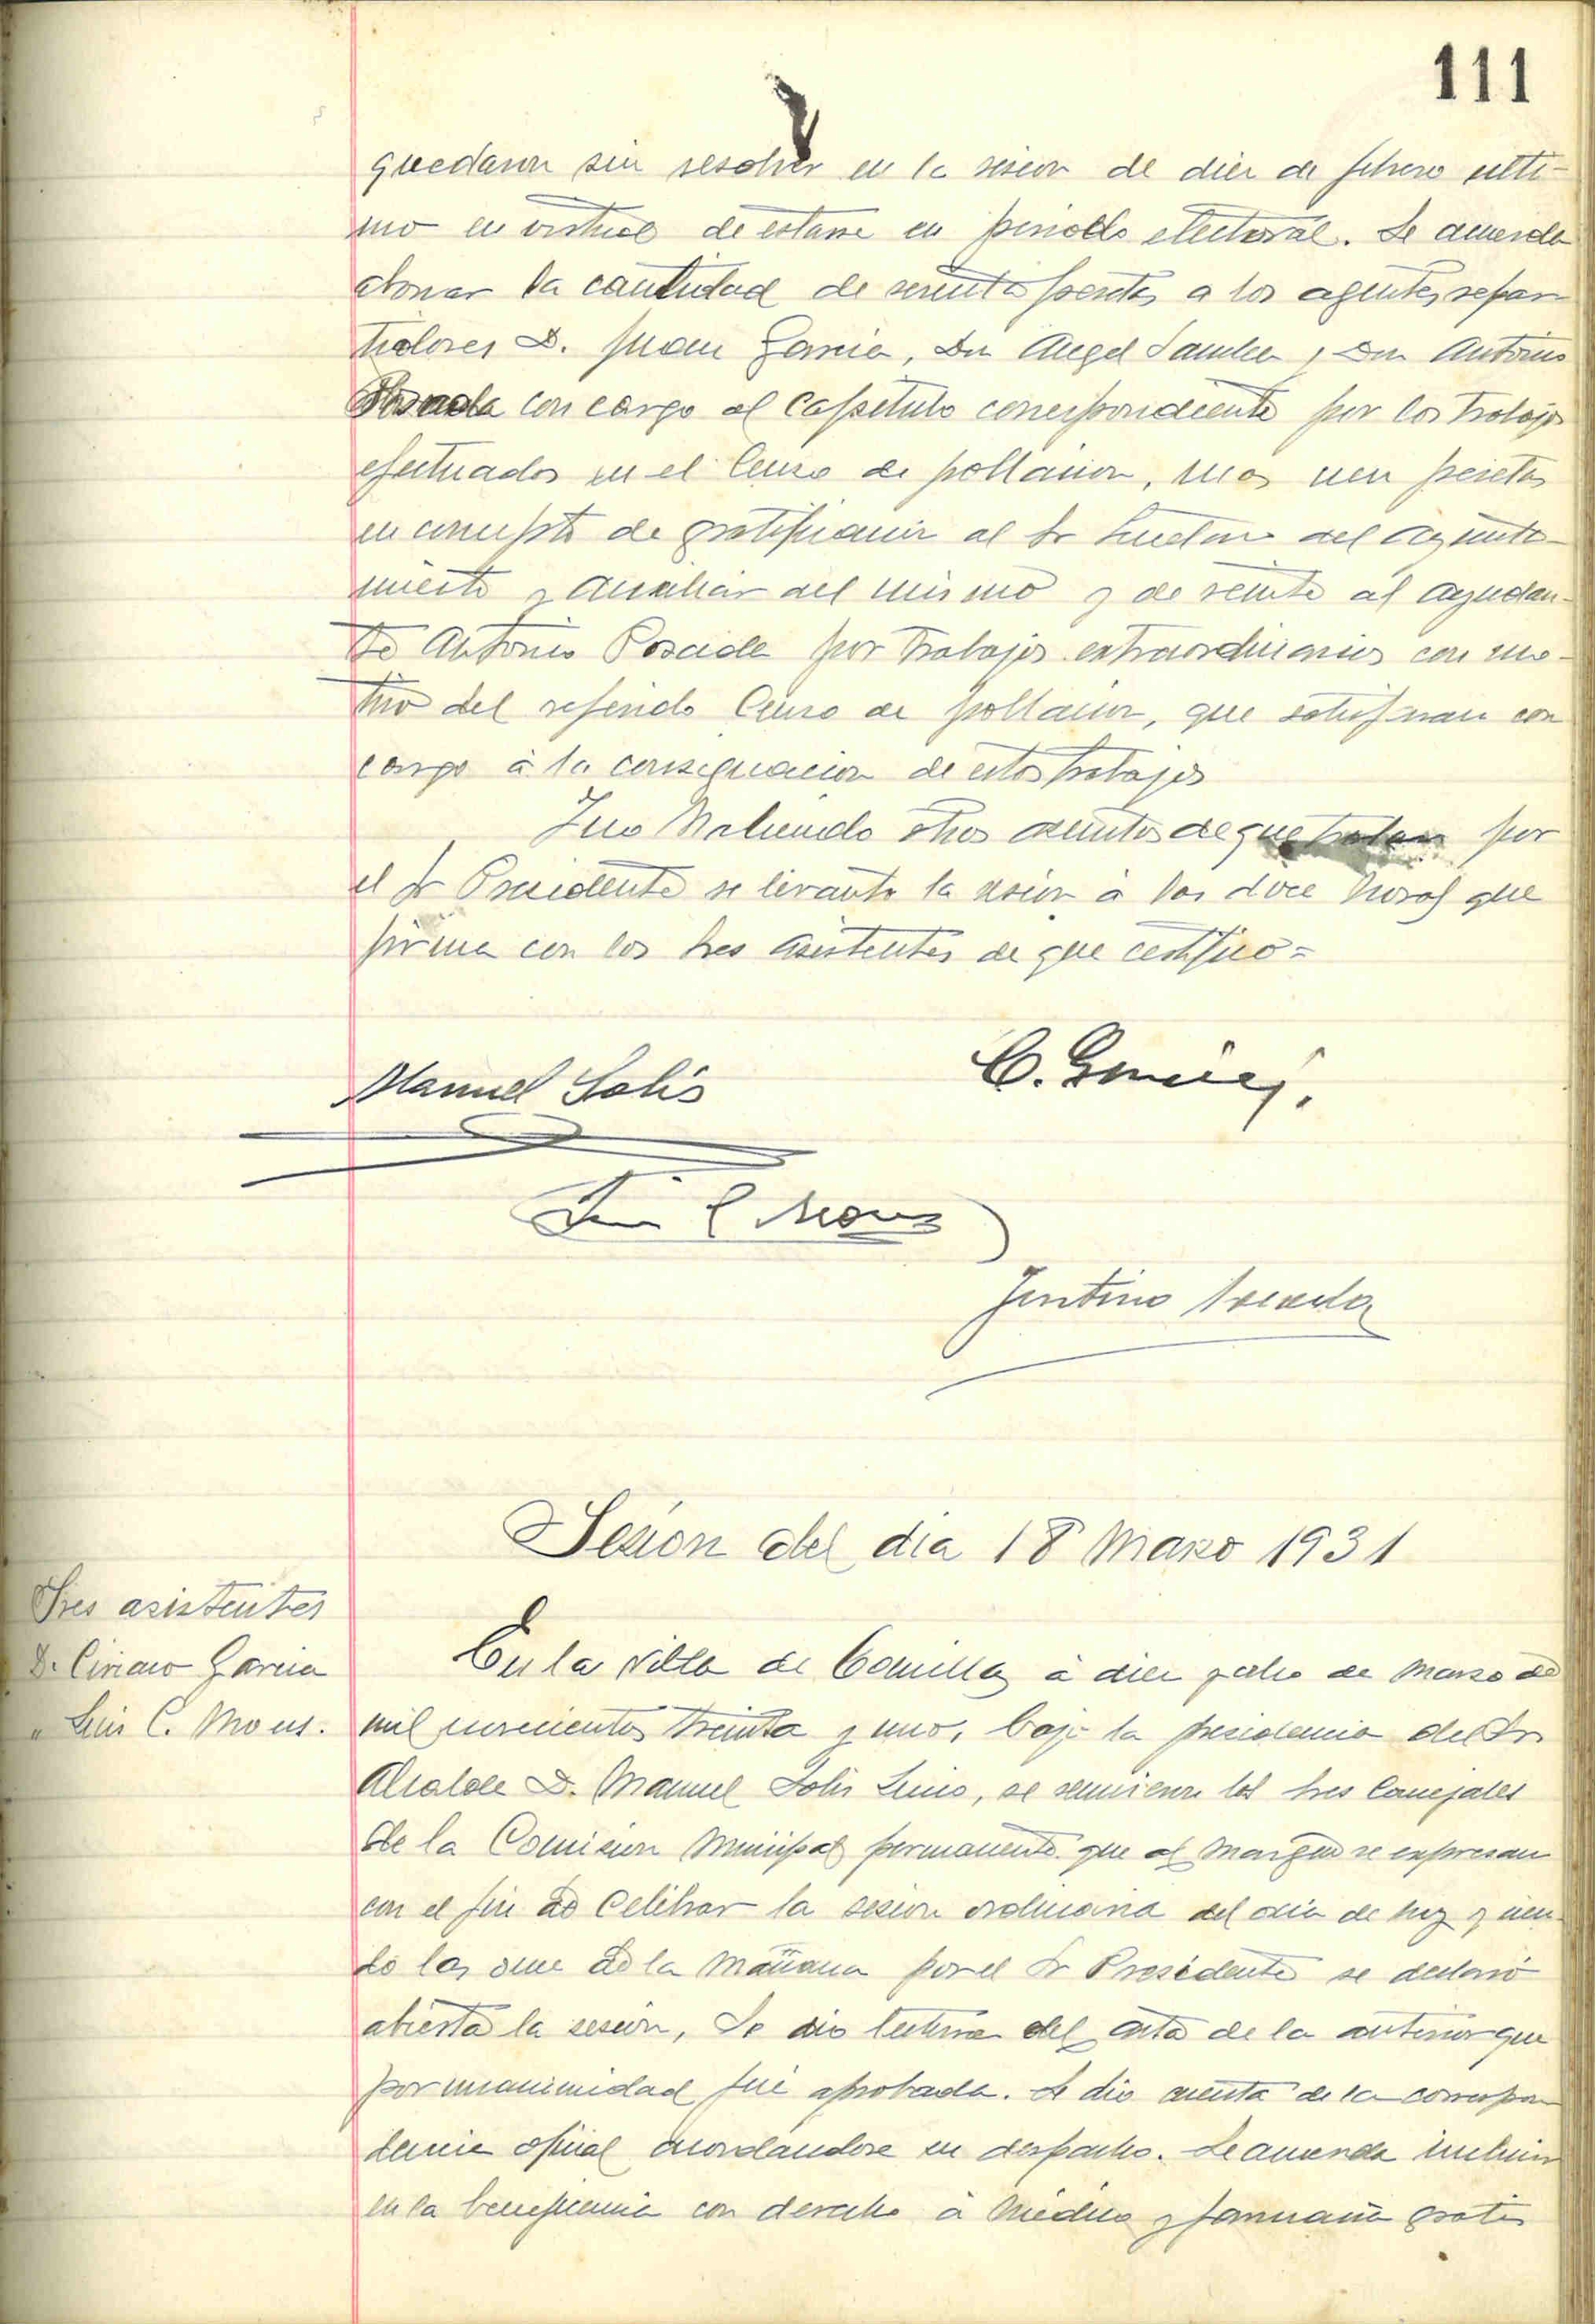 111
quedaron sin resolver en la sesion de diez de febrero ulti-
mo en virtud de estarse en periodo electoral. Se acuerda
abonar la cantidad de pesetas a los agentes repar
tidores D. Juan Garcia, Don Angel Sanchez y Don Antonio
Posada con cargo al Capitulo correspondiente por los trabajos
efectuados en el Censo de poblacion, mas cien pesetas
en concepto de gratificacion al Sr del Ayunta-
miento y Auxiliar del mismo y de veinte al ayudan-
te Antonio Posada por trabajos extraordinarios con mo-
tivo del referido Censo de poblacion, que satisfaran con
cargo à la consignacion de estos trabajos
Y no habiendo otros asuntos de que tratar por
el Sr Presidente se levanto la sesion à las doce horas que
firma con los Sres asistentes de que certifico=
Manuel Solis
C. Garcia
Luis C Mous
Justino Posada
Sesion del dia 18 Marzo 1931
Sres asistentes
D. Ciriaco Garcia
" Luis C. Mous.
En la villa de Comillas à diez y ocho de Marzo de
mil novecientos treinta y uno, bajo la presidencia del Sr
Alcalde D. Manuel Solis, se reunieron los Sres Concejales
de la Comision Municipal permanente que al margen se expresan
con el fin de celebrar la sesion ordinaria del dia de hoy y sien-
do las once de la mañana por el Sr Presidente se declaró
abierta la sesion, Se dio lectura del acta de la anterior que
por unanimidad fué aprobada. Se dio cuenta de la correspon
dencia oficial acordandose su despacho. Se acuerda incluir
en la beneficencia con derecho à Médico y farmacia gratis